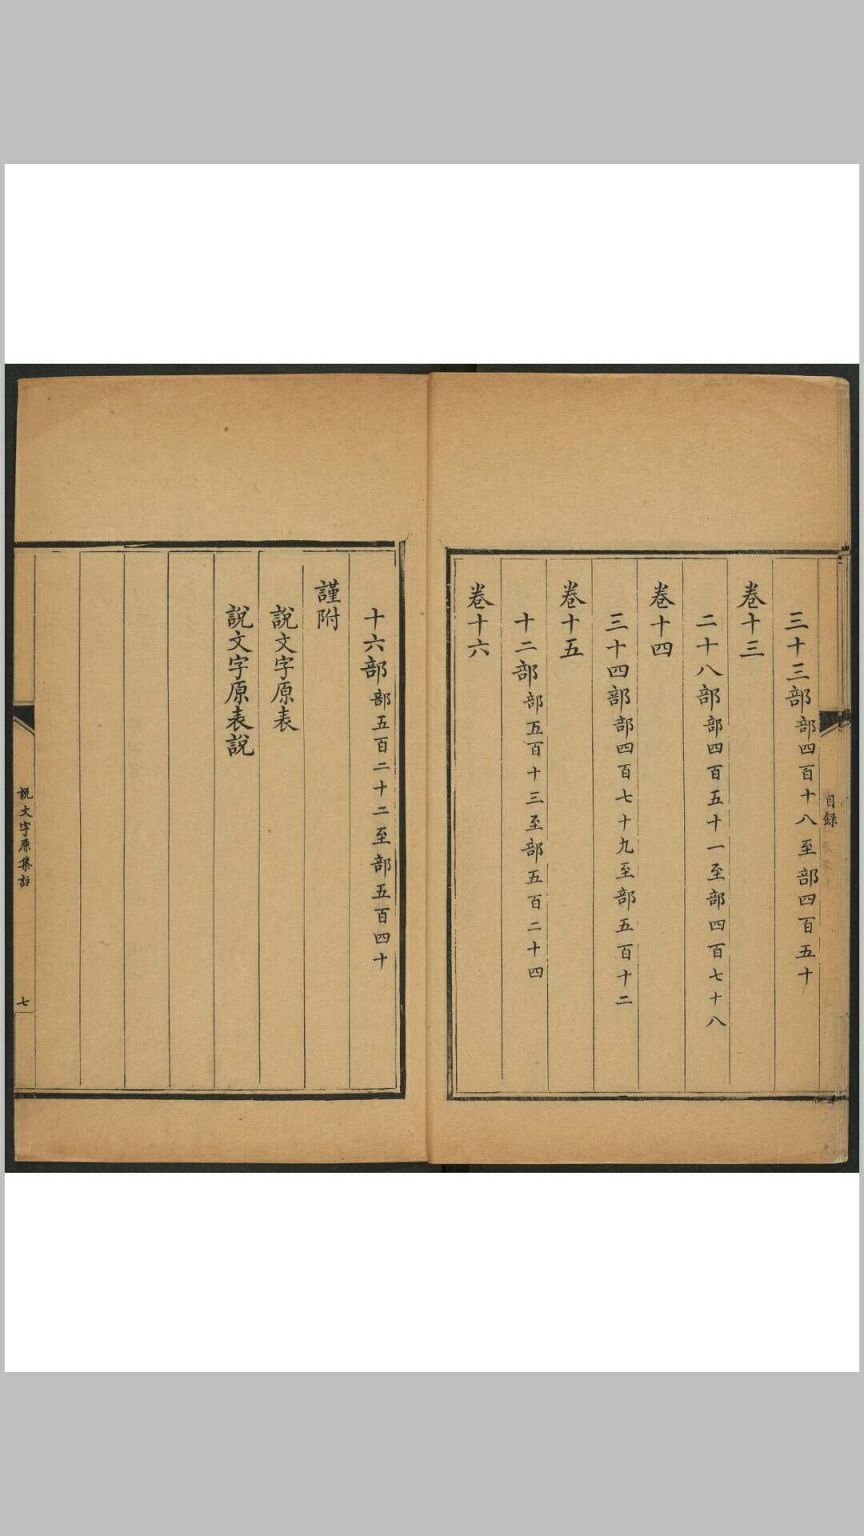 目録
三十三部部四百十八至部四百五十
卷十三
二十八部部四百五十一至部四百七十八
卷十四
三十四部部四百七十九至部五百十二
卷十五
十二部部五百十三至部五百二十四
卷十六
十六部部五百二十二至部五百四十
謹附
說文字原表
說文字原表說
說文字原集註
七